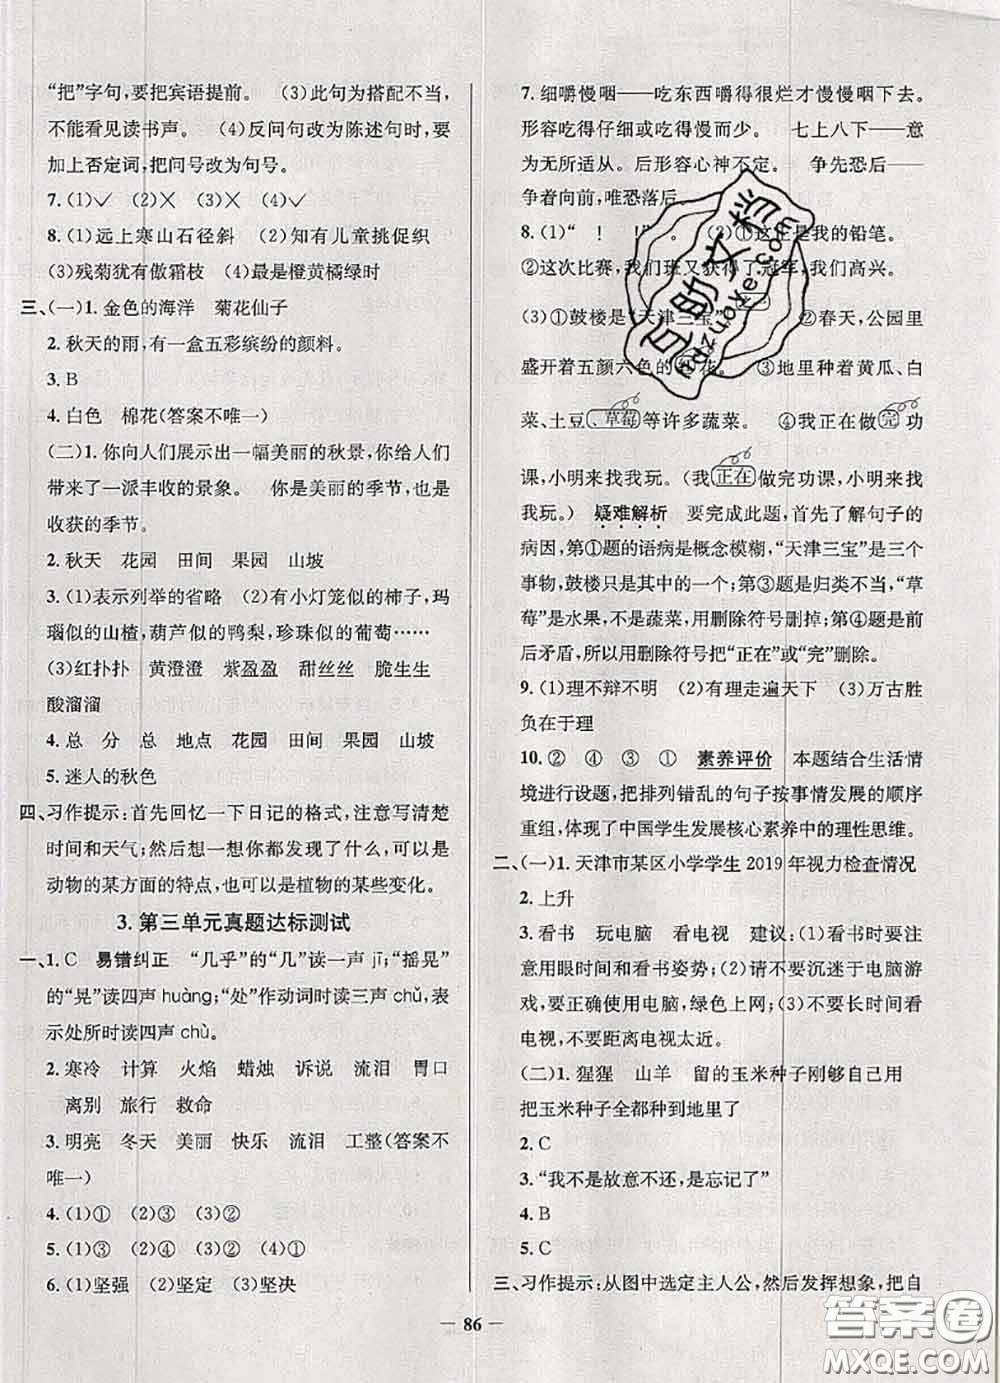 “把”字句,要把宾语提前。　(3)此句为搭配不当,
不能看见读书声。　(4)反问句改为陈述句时,要
加上否定词,把问号改为句号。
7.(1)✓　(2)✕　(3)✕　(4)✓
8.(1)远上寒山石径斜　(2)知有儿童挑促织
(3)残菊犹有傲霜枝　(4)最是橙黄橘绿时
三、(一)1.金色的海洋　菊花仙子
2.秋天的雨,有一盒五彩缤纷的颜料。
3.B
4.白色　棉花(答案不唯一)
(二)1.你向人们展示出一幅美丽的秋景,给人们
带来了一派丰收的景象。　你是美丽的季节,也是
收获的季节。
2.秋天　花园　田间　果园　山坡
3.(1)表示列举的省略　(2)有小灯笼似的柿子,玛
瑙似的山楂,葫芦似的鸭梨,珍珠似的葡萄……
(3)红扑扑　黄澄澄　紫盈盈　甜丝丝　脆生生
酸溜溜
4.总　分　总　地点　花园　田间　果园　山坡
5.迷人的秋色
四、习作提示:首先回忆一下日记的格式,注意写清楚
时间和天气;然后想一想你都发现了什么,可以是
动物的某方面的特点,也可以是植物的某些变化。
3.第三单元真题达标测试
一、1.C　易错纠正　“几乎”的“几”读一声jī;“摇晃”
的“晃”读四声huàng;“处”作动词时读三声chǔ,表
示处所时读四声chù。
2.寒冷　计算　火焰　蜡烛　诉说　流泪　胃口
离别　旅行　救命
3.明亮　冬天　美丽　快乐　流泪　工整(答案不
唯一)
4.(1)①　(2)③　(3)②
5.(1)③　(2)④　(3)②　(4)①
6.(1)坚强　(2)坚定　(3)坚决
7.细嚼慢咽——吃东西嚼得很烂才慢慢咽下去。
形容吃得仔细或吃得慢而少。　七上八下——意
为无所适从。后形容心神不定。　争先恐后——
争着向前,唯恐落后。
8.(1)“　!　!”　。　(2)①这正是我的铅笔。
②这次比赛,我们班又获得了冠军,我们高兴。
(3)①鼓楼是“天津三宝”　②春天,公园里
盛开着五颜六色的鲜花。　③地里种着黄瓜、白
菜、土豆、草莓等许多蔬菜。　④我正在做完功
课,小明来找我玩。(我正在做完功课,小明来找
我玩。)　疑难解析　要完成此题,首先了解句子的
病因,第①题的语病是概念模糊,“天津三宝”是三个
事物,鼓楼只是其中的一个;第③题是归类不当,“草
莓”是水果,不是蔬菜,用删除符号删掉;第④题是前
后矛盾,所以用删除符号把“正在”或“完”删除。
9.(1)理不辩不明　(2)有理走遍天下　(3)万古胜
负在于理
10.②　④　③　①　素养评价　本题结合生活情
境进行设题,把排列错乱的句子按事情发展的顺序
重组,体现了中国学生发展核心素养中的理性思维。
二、(一)1.天津市某区小学学生2019年视力检查情况
2.上升
3.看书　玩电脑　看电视　建议:(1)看书时要注
意用眼时间和看书姿势;(2)请不要沉迷于电脑游
戏,要正确使用电脑,绿色上网;(3)不要长时间看
电视,不要距离电视太近。
(二)1.猩猩　山羊　留的玉米种子刚够自己用
把玉米种子全都种到地里了
2.C
3.“我不是故意不还,是忘记了”
4.B
5.C
三、习作提示:从图中选定主人公,然后发挥想象,把自
86
互助文档
答案圈
MXQE.COM